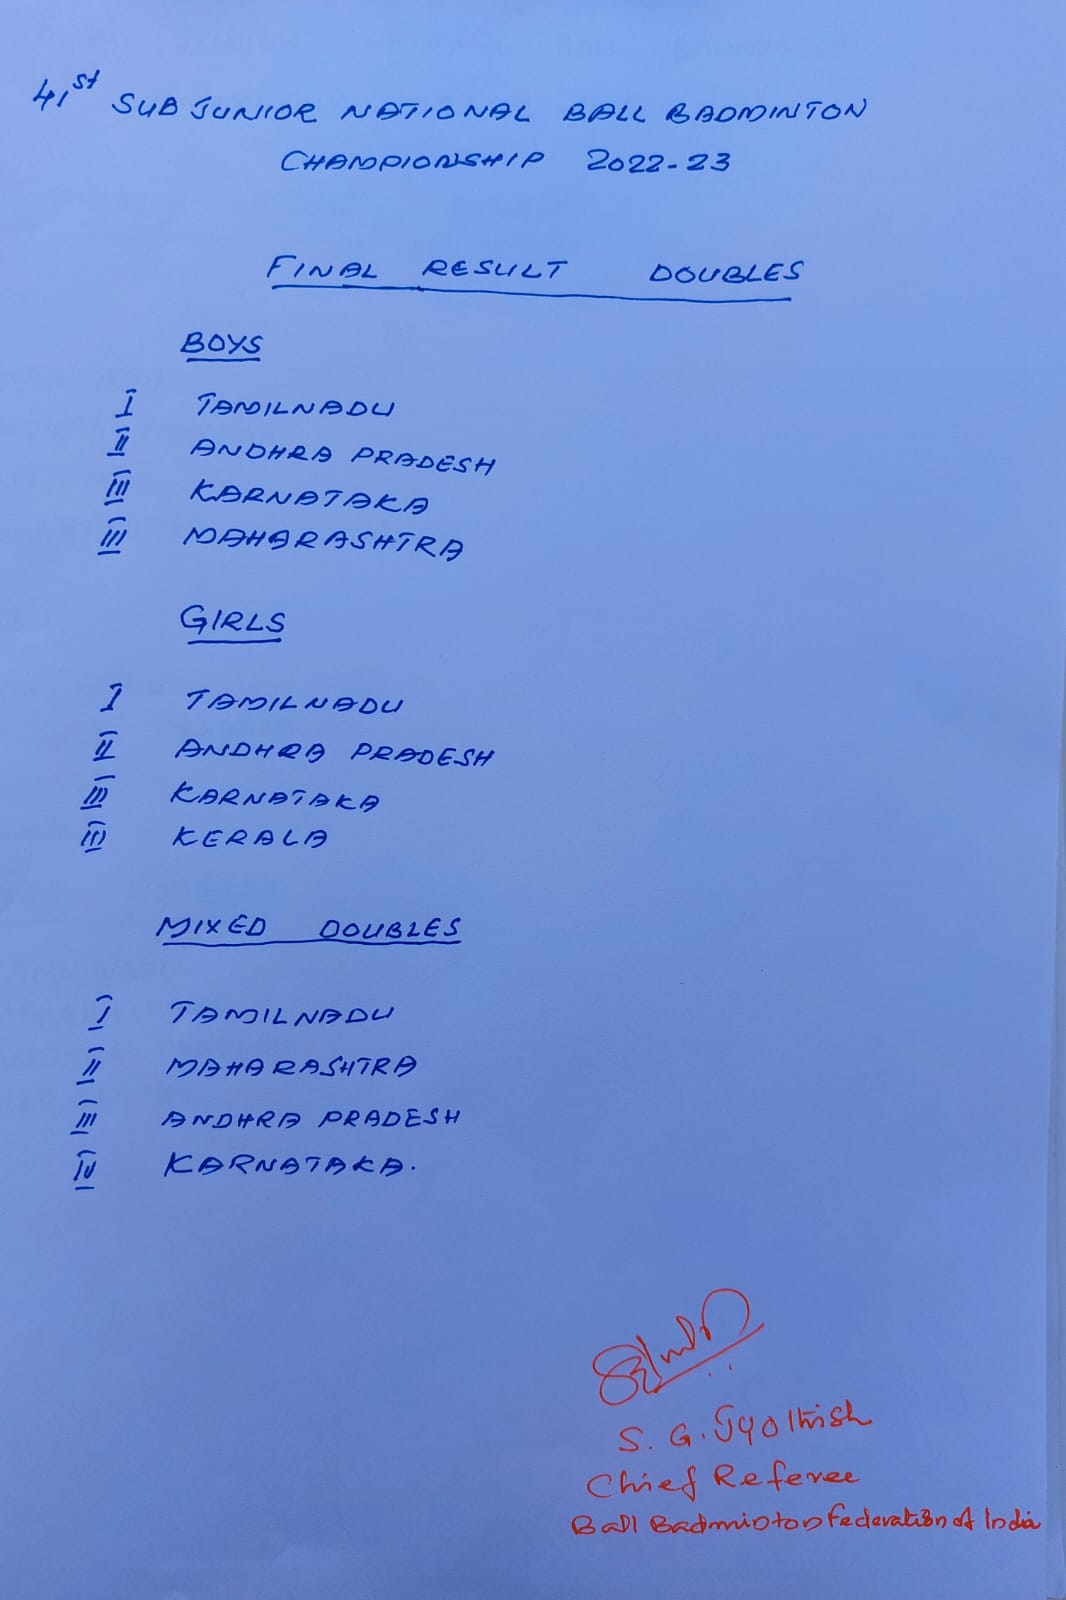 41st SUB JUNIOR NATIONAL BALL BADMINTON
CHAMPIONSHIP 2022-23
FINAL RESULT DOUBLES
BOYS
I TAMILNADU
II ANDHRA PRADESH
III KARNATAKA
III MAHARASHTRA
GIRLS
I TAMILNADU
II ANDHRA PRADESH
III KARNATAKA
III KERALA
MIXED DOUBLES
I TAMILNADU
II MAHARASHTRA
III ANDHRA PRADESH
IV KARNATAKA.
S. G. Jyothish
Chief Referee
Ball Badminton Federation of India